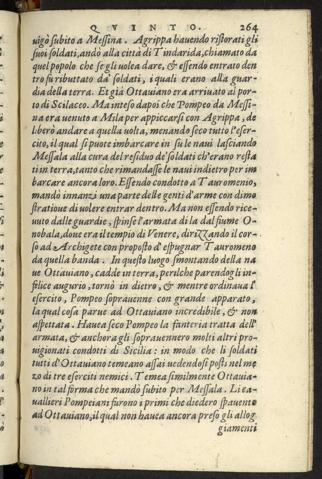 QVINTO. 264
uigò subito a Messina. Agrippa hauendo ristorati gli
suoi soldati, andò alla città di Tindarida, chiamato da
quel popolo che se gli uolea dare, & essendo entrato den
tro fu ributtato da' soldati, i quali erano alla guar-
dia della terra. Et già Ottauiano era arriuato al por-
to di Scilacco. Ma inteso dapoi che Pompeo da Messi-
na era uenuto a Mila per appiccarsi con Agrippa, de
liberò andare a quella uolta, menando seco tutto l'eser-
cito, il qual si puote imbarcare in su le naui lasciando
Messala alla cura del residuo de' soldati ch'erano resta
ti in terra, tanto che rimandasse le naui indietro per im
barcare ancora loro. Essendo condotto a Tauromenio,
mandò innanzi una parte delle genti d'arme con dimo
stratione di uolere entrar dentro. Ma non essendo rice-
uuto dalle guardie, spinse l'armata di la dal fiume O-
nobala, doue era il tempio di Venere, dirizzando il cor-
so ad Archigete con proposito d'espugnar Tauromeno
da quella banda. In questo luogo smontando della na
ue Ottauiano, cadde in terra, perilche parendogli in-
felice augurio, tornò in dietro, & mentre ordinaua l'
esercito, Pompeo soprauenne con grande apparato,
la qual cosa parue ad Ottauiano incredibile, & non
aspettata. Hauea seco Pompeo la fanteria tratta dell'
armata, & anchora gli soprauennero molti altri pro-
uigionati condotti di Sicilia: in modo che li soldati
tutti d'Ottauiano temeano assai uedendosi posti nel me
zo di tre eserciti nemici. Temea similmente Ottauia-
no in tal forma che mandò subito per Messala. Li ca-
uallieri Pompeiani furono i primi che diedero spauento
ad Ottauiano, il qual non hauea ancora preso gli allog
giamenti